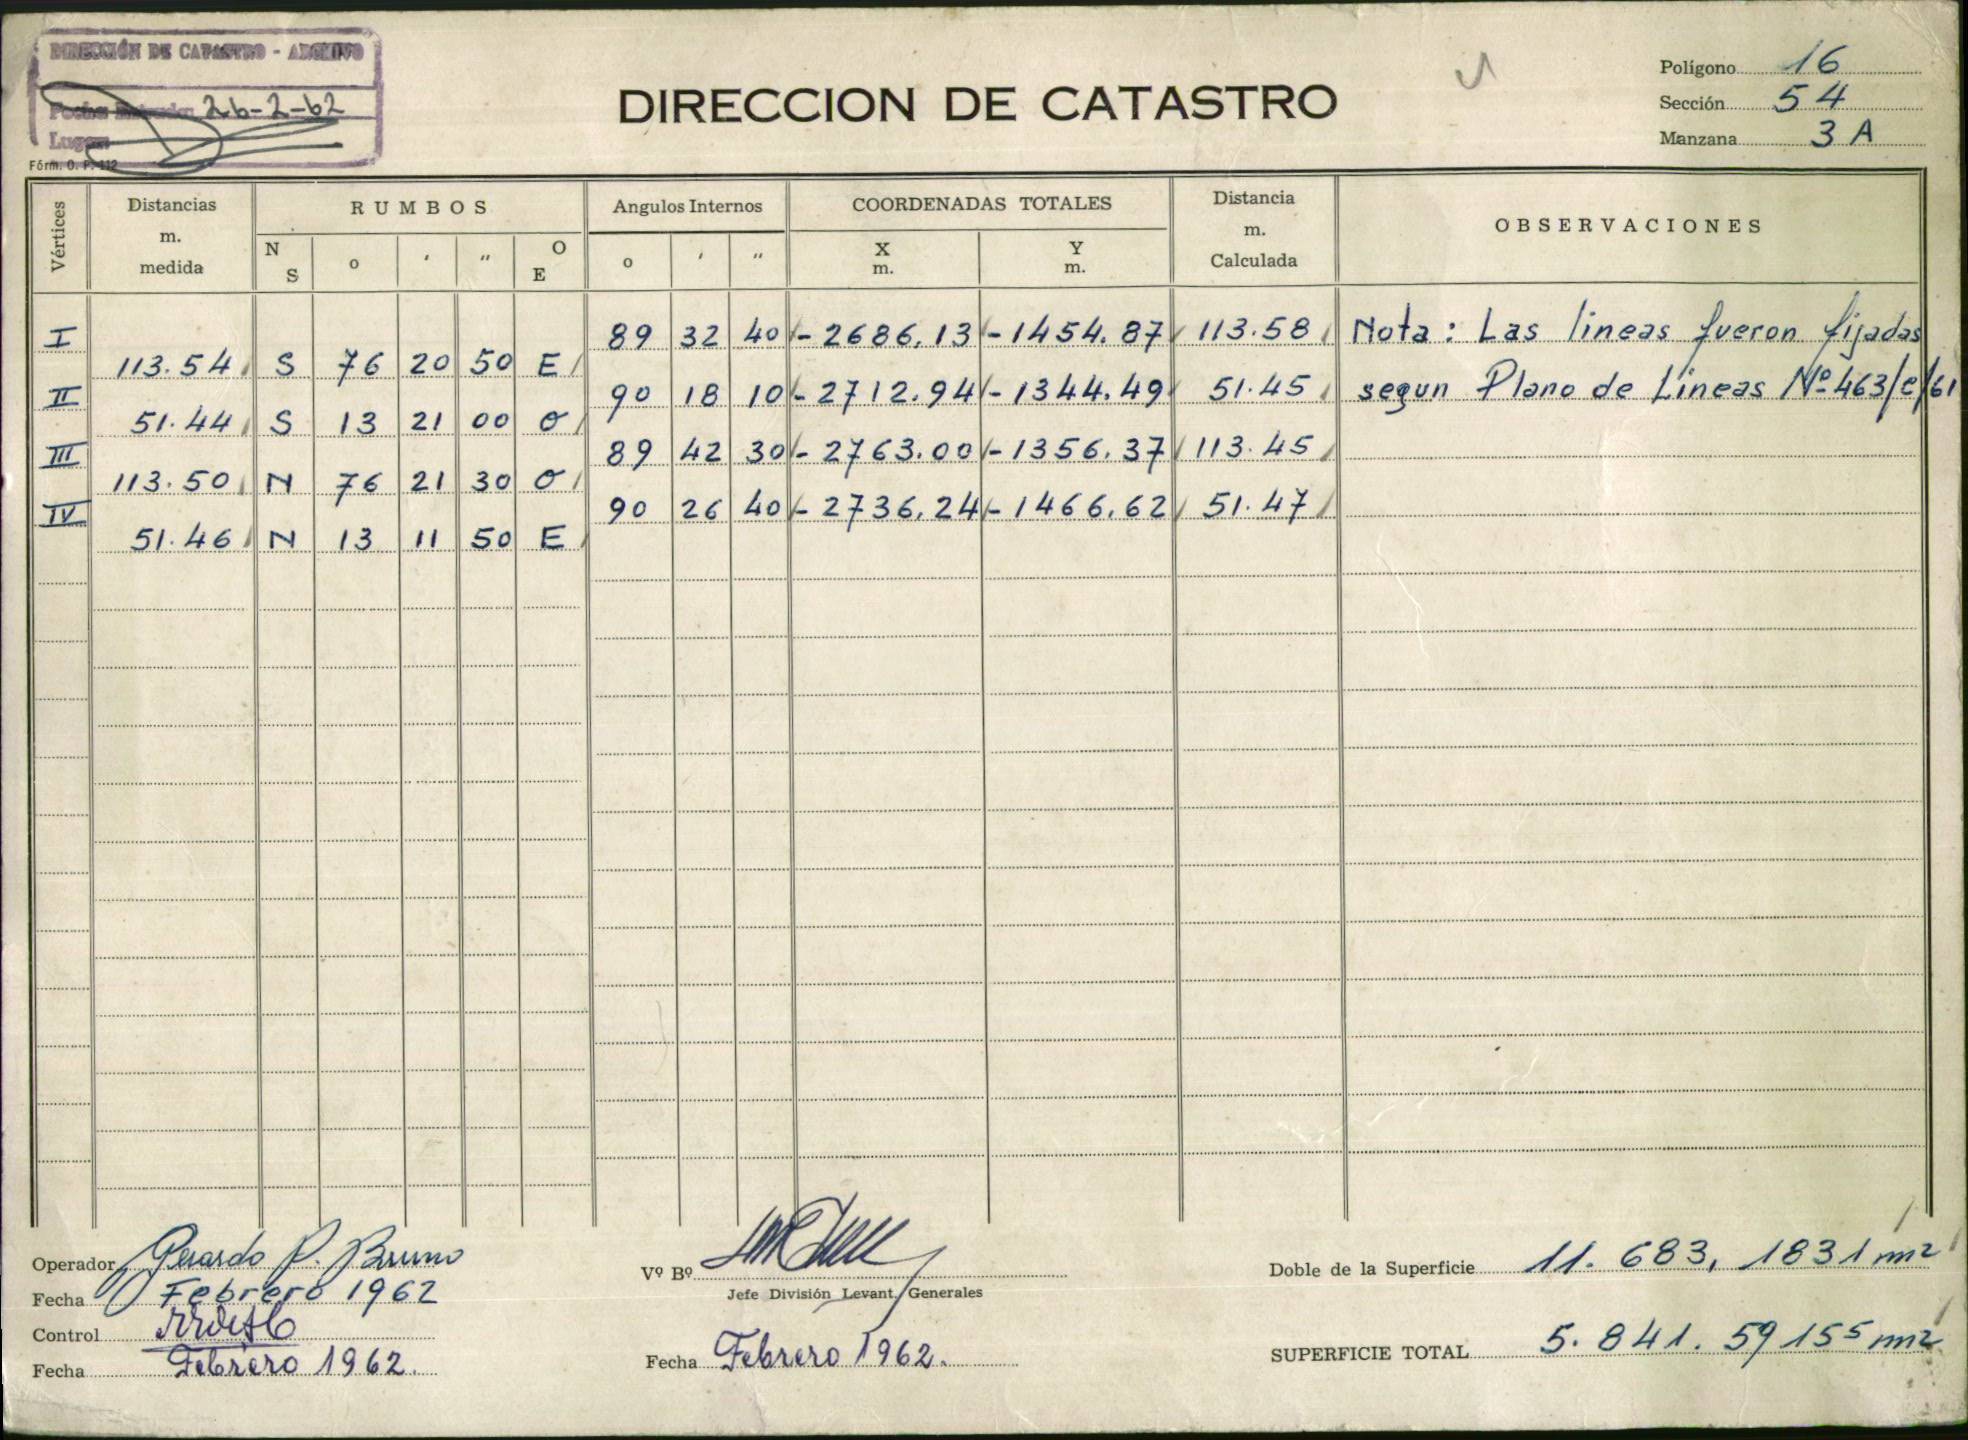 DIRECCIÓN DE CATASTRO - ARCHIVO
Fecha Entrada: 26-2-62
Lugar:
Fórm. O. P. 112
DIRECCION DE CATASTRO
Polígono 16
Sección 54
Manzana 3 A
Vértices Distancias m. medida RUMBOS Angulos Internos COORDENADAS TOTALES Distancia m. Calculada OBSERVACIONES
N S o ' " O E o ' " X m. Y m.
I 89 32 40 - 2686.13 - 1454.87 113.58 Nota: Las lineas fueron fijadas
113.54 S 76 20 50 E
II 90 18 10 - 2712.94 - 1344.49 51.45 segun Plano de Líneas Nº 463/e/61
51.44 S 13 21 00 O
III 89 42 30 - 2763.00 - 1356.37 113.45
113.50 N 76 21 30 O
IV 90 26 40 - 2736.24 - 1466.62 51.47
51.46 N 13 11 50 E
Operador Gerardo P. Bruno
Fecha Febrero 1962
Control
Fecha Febrero 1962.
Vº Bº
Jefe División Levant. Generales
Fecha Febrero 1962.
Doble de la Superficie 11.683,1831 m2
SUPERFICIE TOTAL 5.841.59155 m2